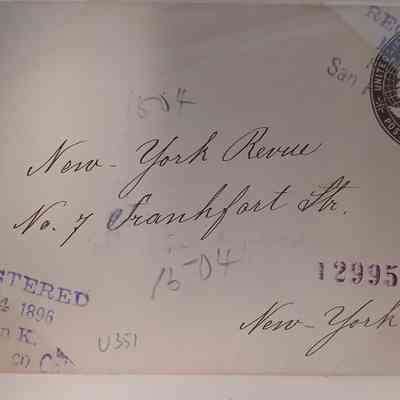 RE
San
UNITED
POS
15-04
New-York Revue
No. 7 Frankfort Str.
15-04
12995
STERED
4 1896
n K.
U351
New-York